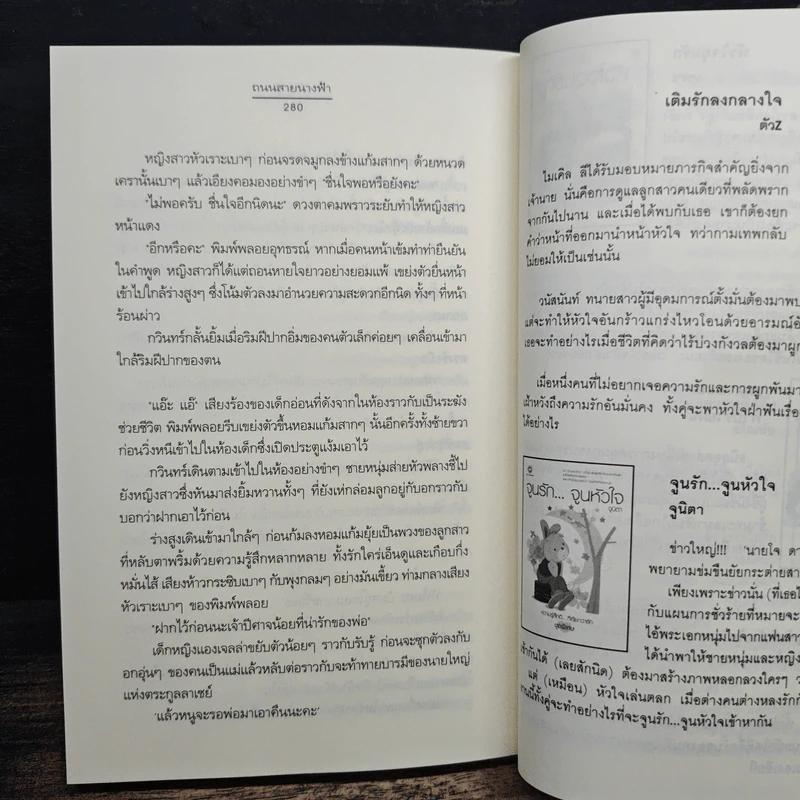 ถนนสายนางฟ้า
280
หญิงสาวหัวเราะเบาๆ ก่อนจรดจมูกลงข้างแก้มสากๆ ด้วยหนวด
เครานั้นเบาๆ แล้วเอียงคอมองอย่างขำๆ 'ชื่นใจพอหรือยังคะ'
'ไม่พอครับ ชื่นใจอีกนิดนะ' ดวงตาคมพราวระยับทำให้หญิงสาว
หน้าแดง
'อีกหรือคะ' พิมพ์พลอยอุทธรณ์ หากเมื่อคนหน้าเข้มทำท่ายืนยัน
ในคำพูด หญิงสาวก็ได้แต่ถอนหายใจยาวอย่างยอมแพ้ เขย่งตัวยื่นหน้า
เข้าไปใกล้ร่างสูงๆ ซึ่งโน้มตัวลงมาอำนวยความสะดวกอีกนิด ทั้งๆ ที่หน้า
ร้อนผ่าว
กวินทร์กลั้นยิ้มเมื่อริมฝีปากอิ่มของคนตัวเล็กค่อยๆ เคลื่อนเข้ามา
ใกล้ริมฝีปากของตน
"แอ๊ะ แอ๊" เสียงร้องของเด็กอ่อนที่ดังจากในห้องราวกับเป็นระฆัง
ช่วยชีวิต พิมพ์พลอยรีบเขย่งตัวขึ้นหอมแก้มสากๆ นั้นอีกครั้งทั้งซ้ายขวา
ก่อนวิ่งหนีเข้าไปในห้องเด็กซึ่งเปิดประตูแง้มเอาไว้
กวินทร์เดินตามเข้าไปในห้องอย่างขำๆ ชายหนุ่มส่ายหัวพลางชี้ไป
ยังหญิงสาวซึ่งหันมาส่งยิ้มหวานทั้งๆ ที่ยังเห่กล่อมลูกอยู่กับอกราวกับ
บอกว่าฝากเอาไว้ก่อน
ร่างสูงเดินเข้ามาใกล้ๆ ก่อนก้มลงหอมแก้มยุ้ยเป็นพวงของลูกสาว
ที่หลับตาพริ้มด้วยความรู้สึกหลากหลาย ทั้งรักใคร่เอ็นดูและเกือบกึ่ง
หมั่นไส้ เสียงห้าวกระซิบเบาๆ กับพุงกลมๆ อย่างมันเขี้ยว ท่ามกลางเสียง
หัวเราะเบาๆ ของพิมพ์พลอย
"ฝากไว้ก่อนนะเจ้าปีศาจน้อยที่น่ารักของพ่อ"
เด็กหญิงแองเจลล่าขยับตัวน้อยๆ ราวกับรับรู้ ก่อนจะซุกตัวลงกับ
อกอุ่นๆ ของคนเป็นแม่แล้วหลับต่อราวกับจะท้าทายบารมีของนายใหญ่
แห่งตระกูลลาเซย์
'แล้วหนูจะรอพ่อมาเอาคืนนะคะ'
เติมรักลงกลางใจ
ตัวz
ไมเคิล ลีได้รับมอบหมายภารกิจสำคัญยิ่งจาก
เจ้านาย นั่นคือการดูแลลูกสาวคนเดียวที่พลัดพราก
จากกันไปนาน และเมื่อได้พบกับเธอ เขาก็ต้องยก
คำว่าหน้าที่ออกมานำหน้าหัวใจ ทว่ากามเทพกลับ
ไม่ยอมให้เป็นเช่นนั้น
วนัสนันท์ ทนายสาวผู้มีอุดมการณ์ตั้งมั่นต้องมาพบ
แต่จะทำให้หัวใจอันกร้าวแกร่งไหวโอนด้วยอารมณ์
เธอจะทำอย่างไรเมื่อชีวิตที่คิดว่าไร้บ่วงกังวลต้องมาผูก
เมื่อหนึ่งคนที่ไม่อยากเจอความรักและการผูกพันมา
เฝ้าหวังถึงความรักอันมั่นคง ทั้งคู่จะพาหัวใจฝ่าฟัน
ได้อย่างไร
จูนรัก... จูนหัวใจ
จูนิตา
จูนรัก...จูนหัวใจ
จูนิตา
ข่าวใหญ่!!! 'นายโจ
พยายามข่มขืนยัยกระต่าย
เพียงเพราะข่าวนั่น (ที่เธอ
กับแผนการชั่วร้ายที่หมายจะ
ไอ้พระเอกหนุ่มไปจากแฟน
ได้นำพาให้ชายหนุ่มและหญิง
เข้ากันได้ (เลยสักนิด) ต้องมาสร้างภาพหลอกลวงใครๆ
แต่ (เหมือน) หัวใจเล่นตลก เมื่อต่างคนต่างหลงรัก
งานนี้ทั้งคู่จะทำอย่างไรที่จะจูนรัก...จูนหัวใจเข้าหากัน